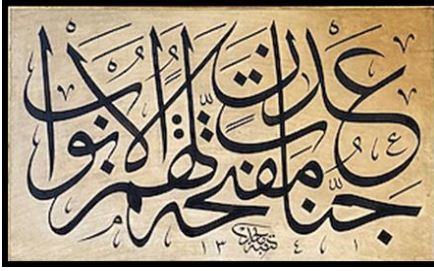 جنّات عدن مفتحة لهم الابواب
كتبه
١٣٤١